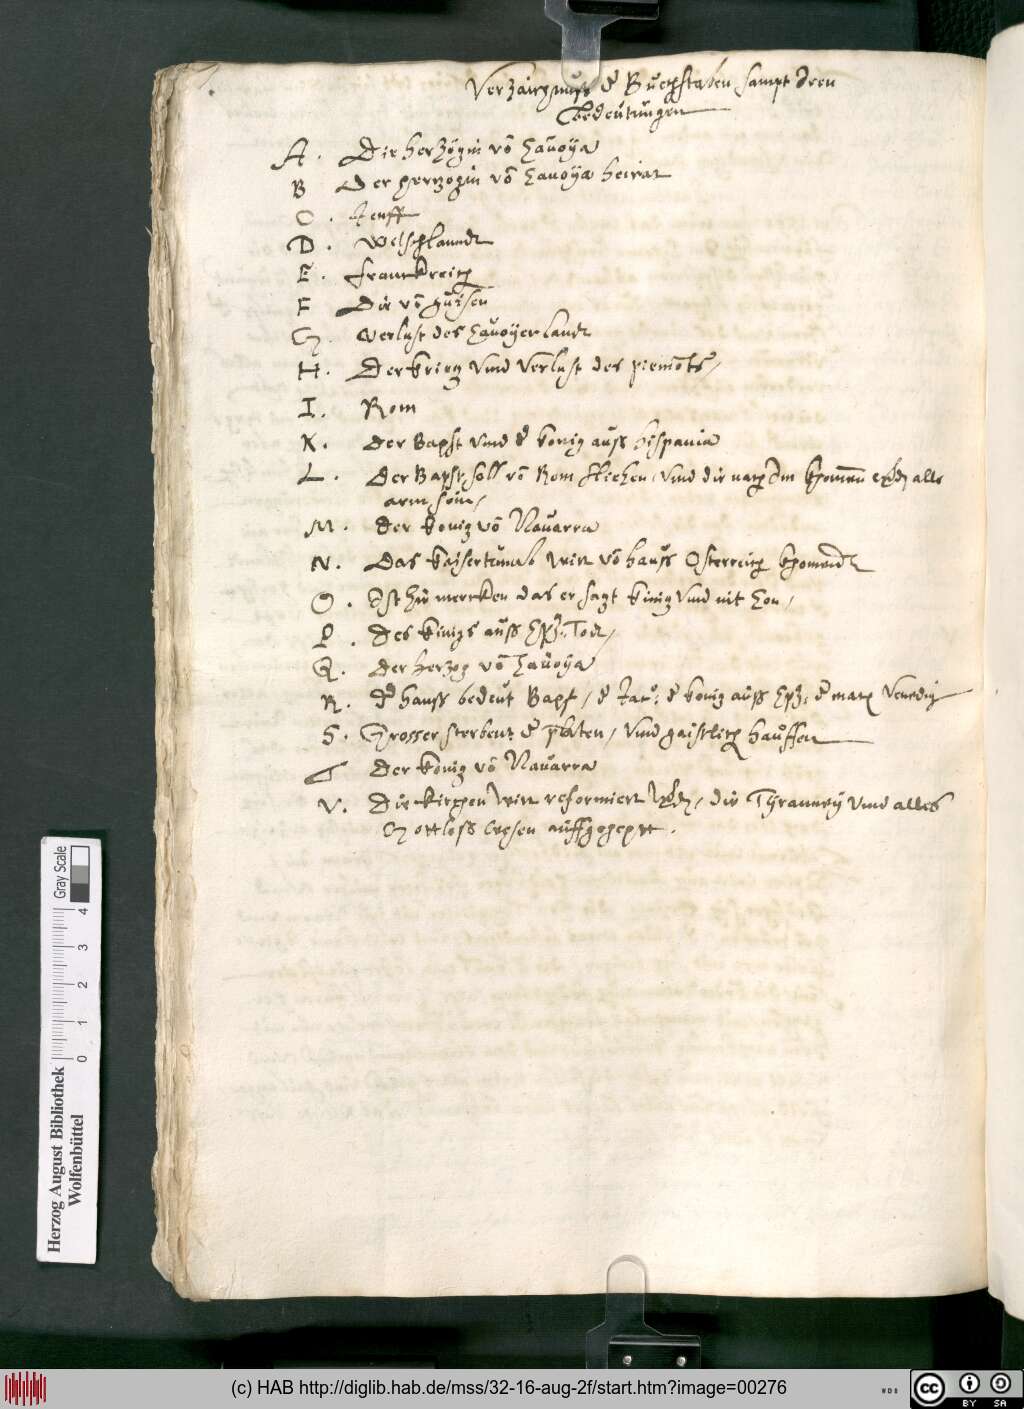 Verzaichnuß der Buechstaben sampt Iren
bedeutungen
A. Die herzogin võ Sauoÿa
B Der herzogin võ Sauoÿa heirat
C. Jenff
D. Welschlanndt
E. Franckreich
F Die võ Guisen
G. Verlust des Sauoÿer landt
H. Der krieg vnd verlust des piemonts /
I. Rom
K. Der Bapst vnd der konig auss hispania
L. Der Bapst soll võ Rom fliehen, vnd die nach Im khomenn alle
arm sein /
M. Der konig võ Nauarra
N. Das kaisertumb wirt võ hauss Osterreich khomendt
O. Ist zu mercken das er sagt kinig vnd nit
P. Des kinigs auss Tod /
Q. Der herzog võ Sauoÿa
R. hauss bedeut Bapst / der der konig auss Venedig
S. Grosser sterbent der / vnd gaistlich hauffen
T Der konig võ Nauarra
V. Die kirchen wirt reformiert / die Tÿranneÿ vnd alles
Gottloss wesen auffgehept.
Gray Scale
0 1 2 3 4
Herzog August Bibliothek
Wolfenbüttel
(c) HAB http://diglib.hab.de/mss/32-16-aug-2f/start.htm?image=00276
WDB
cc BY SA